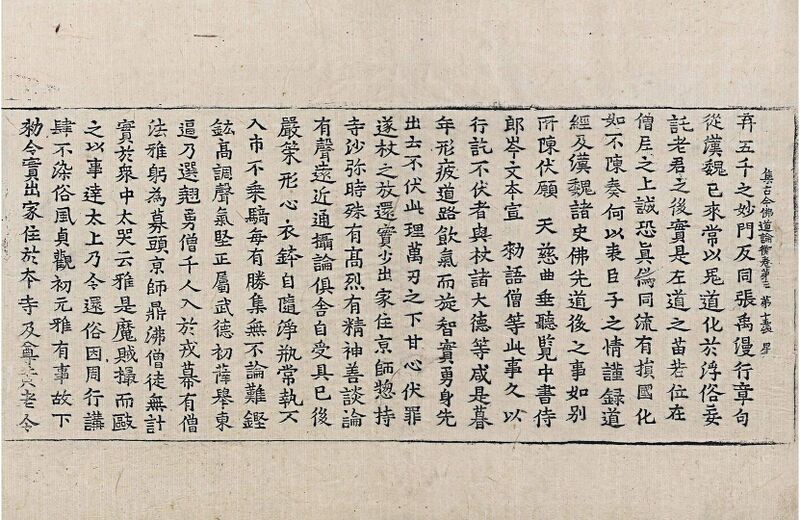 集古今佛道論衡卷第三 第十六張 星
弃五千之妙門反同張禹漫行章句
從漢魏已來常以鬼道化於浮俗妄
託老君之後實是左道之苗若位在
僧尼之上誠恐眞僞同流有損國化
如不陳奏何以表臣子之情謹録道
經及漢魏諸史佛先道後之事如別
所陳伏願 天慈曲垂聽覽中書侍
郎岑文本宣 勑語僧等此事久以
行訖不伏者與杖諸大德等咸是暮
年形疲道路飮氣而旋智實勇身先
出云不伏此理萬刃之下甘心伏罪
遂杖之放還實少出家住京師惣持
寺沙弥時殊有高烈有精神善談論
有聲遠近通攝論俱舍自受具已後
嚴策形心衣鉢自隨淨瓶常執不
入市不乘騎每有勝集無不論難鏗
鈜高調聲氣堅正屬武德初薛舉東
逼乃選翹勇僧千人入於戎幕有僧
法雅躬爲募頭京師鼎沸僧徒無計
實於衆中大哭云雅是魔賊撮而毆
之以事達太上乃令還俗因周行講
肆不染俗風貞觀初元雅有事故下
勑令實出家住於本寺及尊老令